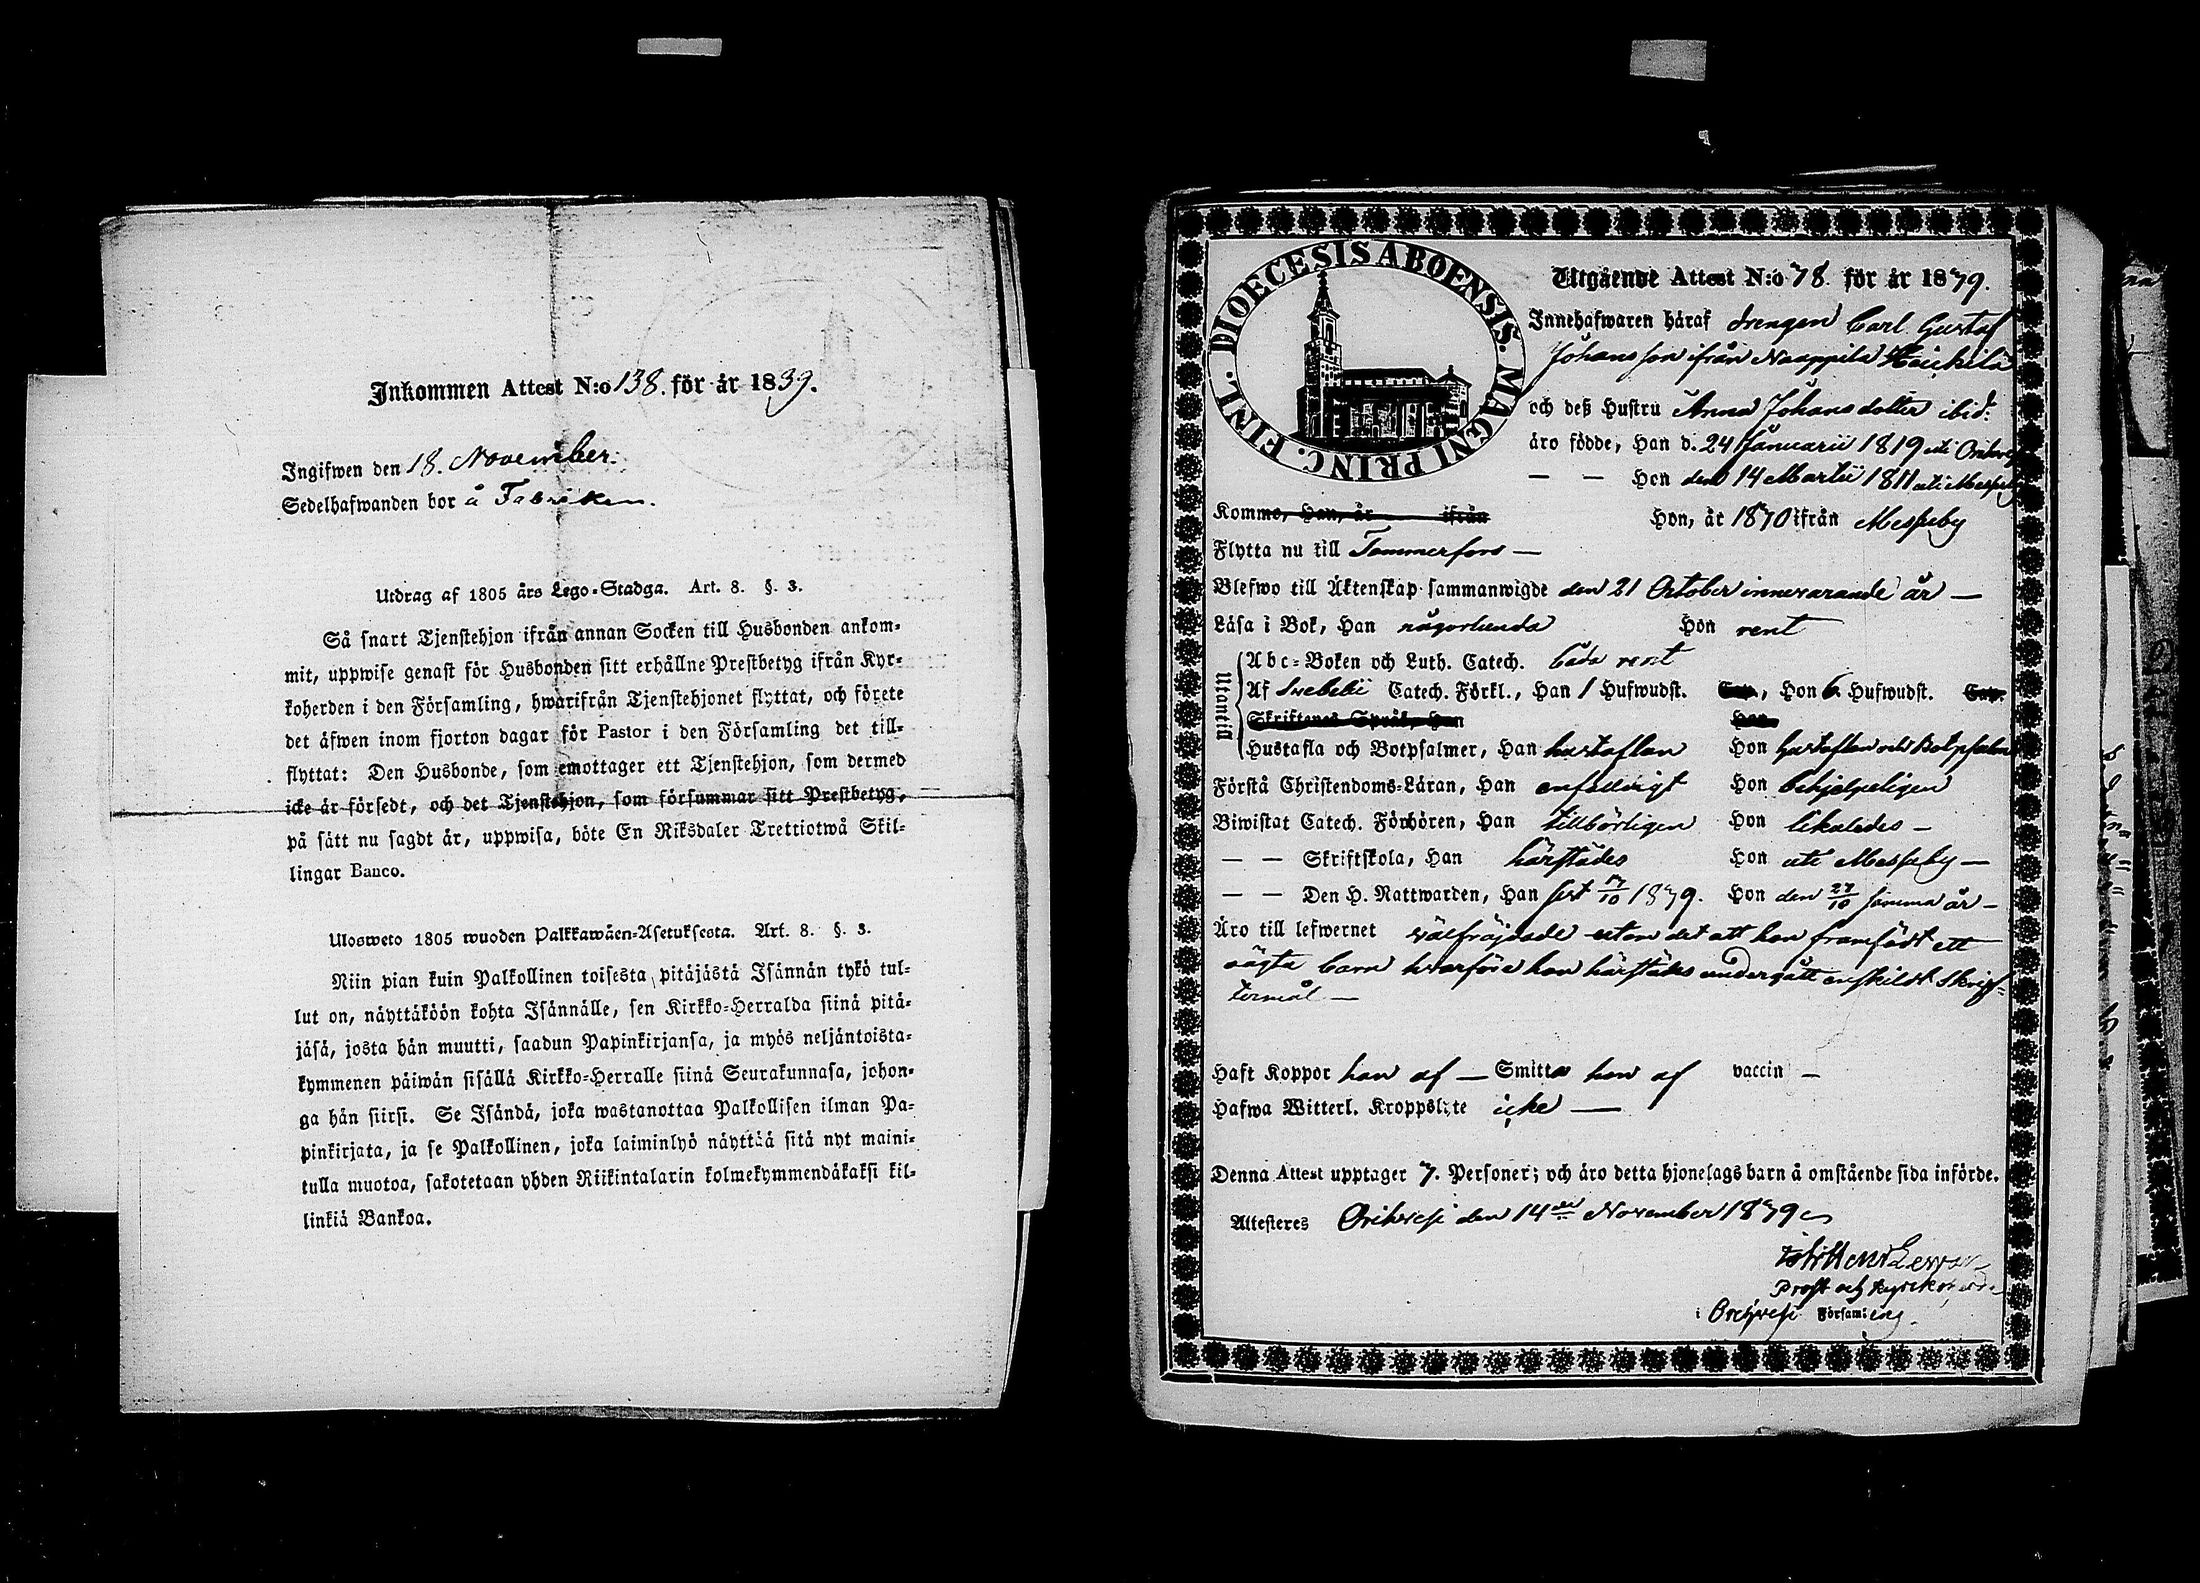 Inkommen Attest N:o 138. för år 1839.
Ingifwen den 18. November.
Sedelhafwanden bor å Fabriken.
Utdrag af 1805 års Lego-Stadga. Art. 8. §. 3.
Så snart Tjenstehjon ifrån annan Socken till Husbonden ankom-
mit, uppwise genast för Husbonden sitt erhållne Prestbetyg ifrån Kyr-
koherden i den Församling, hwarifrån Tjenstehjonet flyttat, och förete
det äfwen inom fjorton dagar för Pastor i den Församling det till-
flyttat: Den Husbonde, som emottager ett Tjenstehjon, som dermed
icke är försedt, och det Tjenstehjon, som försummar sitt Prestbetyg,
på sätt nu sagdt är, uppwisa, böte En Riksdaler Trettiotwå Skil-
lingar Banco.
Ulosweto 1805 wuoden Palkkawäen-Asetuksesta. Art. 8. §. 3.
Niin pian kuin Palkollinen toisesta pitäjästä Isännän tykö tul-
lut on, näyttäköön kohta Isännälle, sen Kirkko-Herralda siinä pitä-
jäsä, josta hän muutti, saadun Papinkirjansa, ja myös neljäntoista-
kymmenen päiwän sisällä Kirkko-Herralle siinä Seurakunnasa, johon-
ga hän siirsi. Se Isändä, joka wastanottaa Palkollisen ilman Pa-
pinkirjata, ja se Palkollinen, joka laiminlyö näyttää sitä nyt maini-
tulla muotoa, sakotetaan yhden Riikintalarin kolmekymmendäkaksi kil-
linkiä Bankoa.
DIOECESIS ABOENSIS. MAGNI PRINC. FINL.
Utgående Attest N:o 78. för år 1879.
Innehafwaren häraf drengen Carl Gustaf
Johansson ifrån Naappila Heickilä
och deß Hustru Anna Johansdotter ibid:
äro födde, Han d. 24 Januarii 1819 uti
— — Hon den 14 Martii 1811 uti Messuby
Komme, Han, år ifrån Hon, år 1870 ifrån Messuby
Flytta nu till Tammerfors —
Blefwo till Äktenskap sammanwigde den 21 October innevarande år —
Läsa i Bok, Han någorlunda Hon rent
Utantill
Abc-Boken och Luth. Catech. båda rent
Af Svebelii Catech. Förkl., Han 1 Hufwudst. Cap., Hon 6. Hufwudst. Cap.
Skriftenes Språk, Han Hon
Hustafla och Botpsalmer, Han hustaflan Hon hustaflan och Botpsalm
Förstå Christendoms-Läran, Han enfaldigt Hon behjelpeligen
Biwistat Catech. Förhören, Han tillbörligen Hon likaledes —
— — Skriftskola, Han härstädes Hon uti Messuby —
— — Den H. Nattwarden, Han sist 1879. Hon den 27/10 samma år —
Äro till lefwernet välfräjdade utom det att hon framfödt ett
oägta barn hvarföre hon härstädes undergått enskildt Skrif-
termål —
Haft Koppor han af — Smittos hon af vaccin —
Hafwa Witterl. Kroppslyte icke —
Denna Attest upptager 7. Personer; och äro detta hjonelags barn å omstående sida införde.
Attesteres Orihvesi den 14de November 1879
Prost och Kyrkoherde
i Orihvesi Församling.